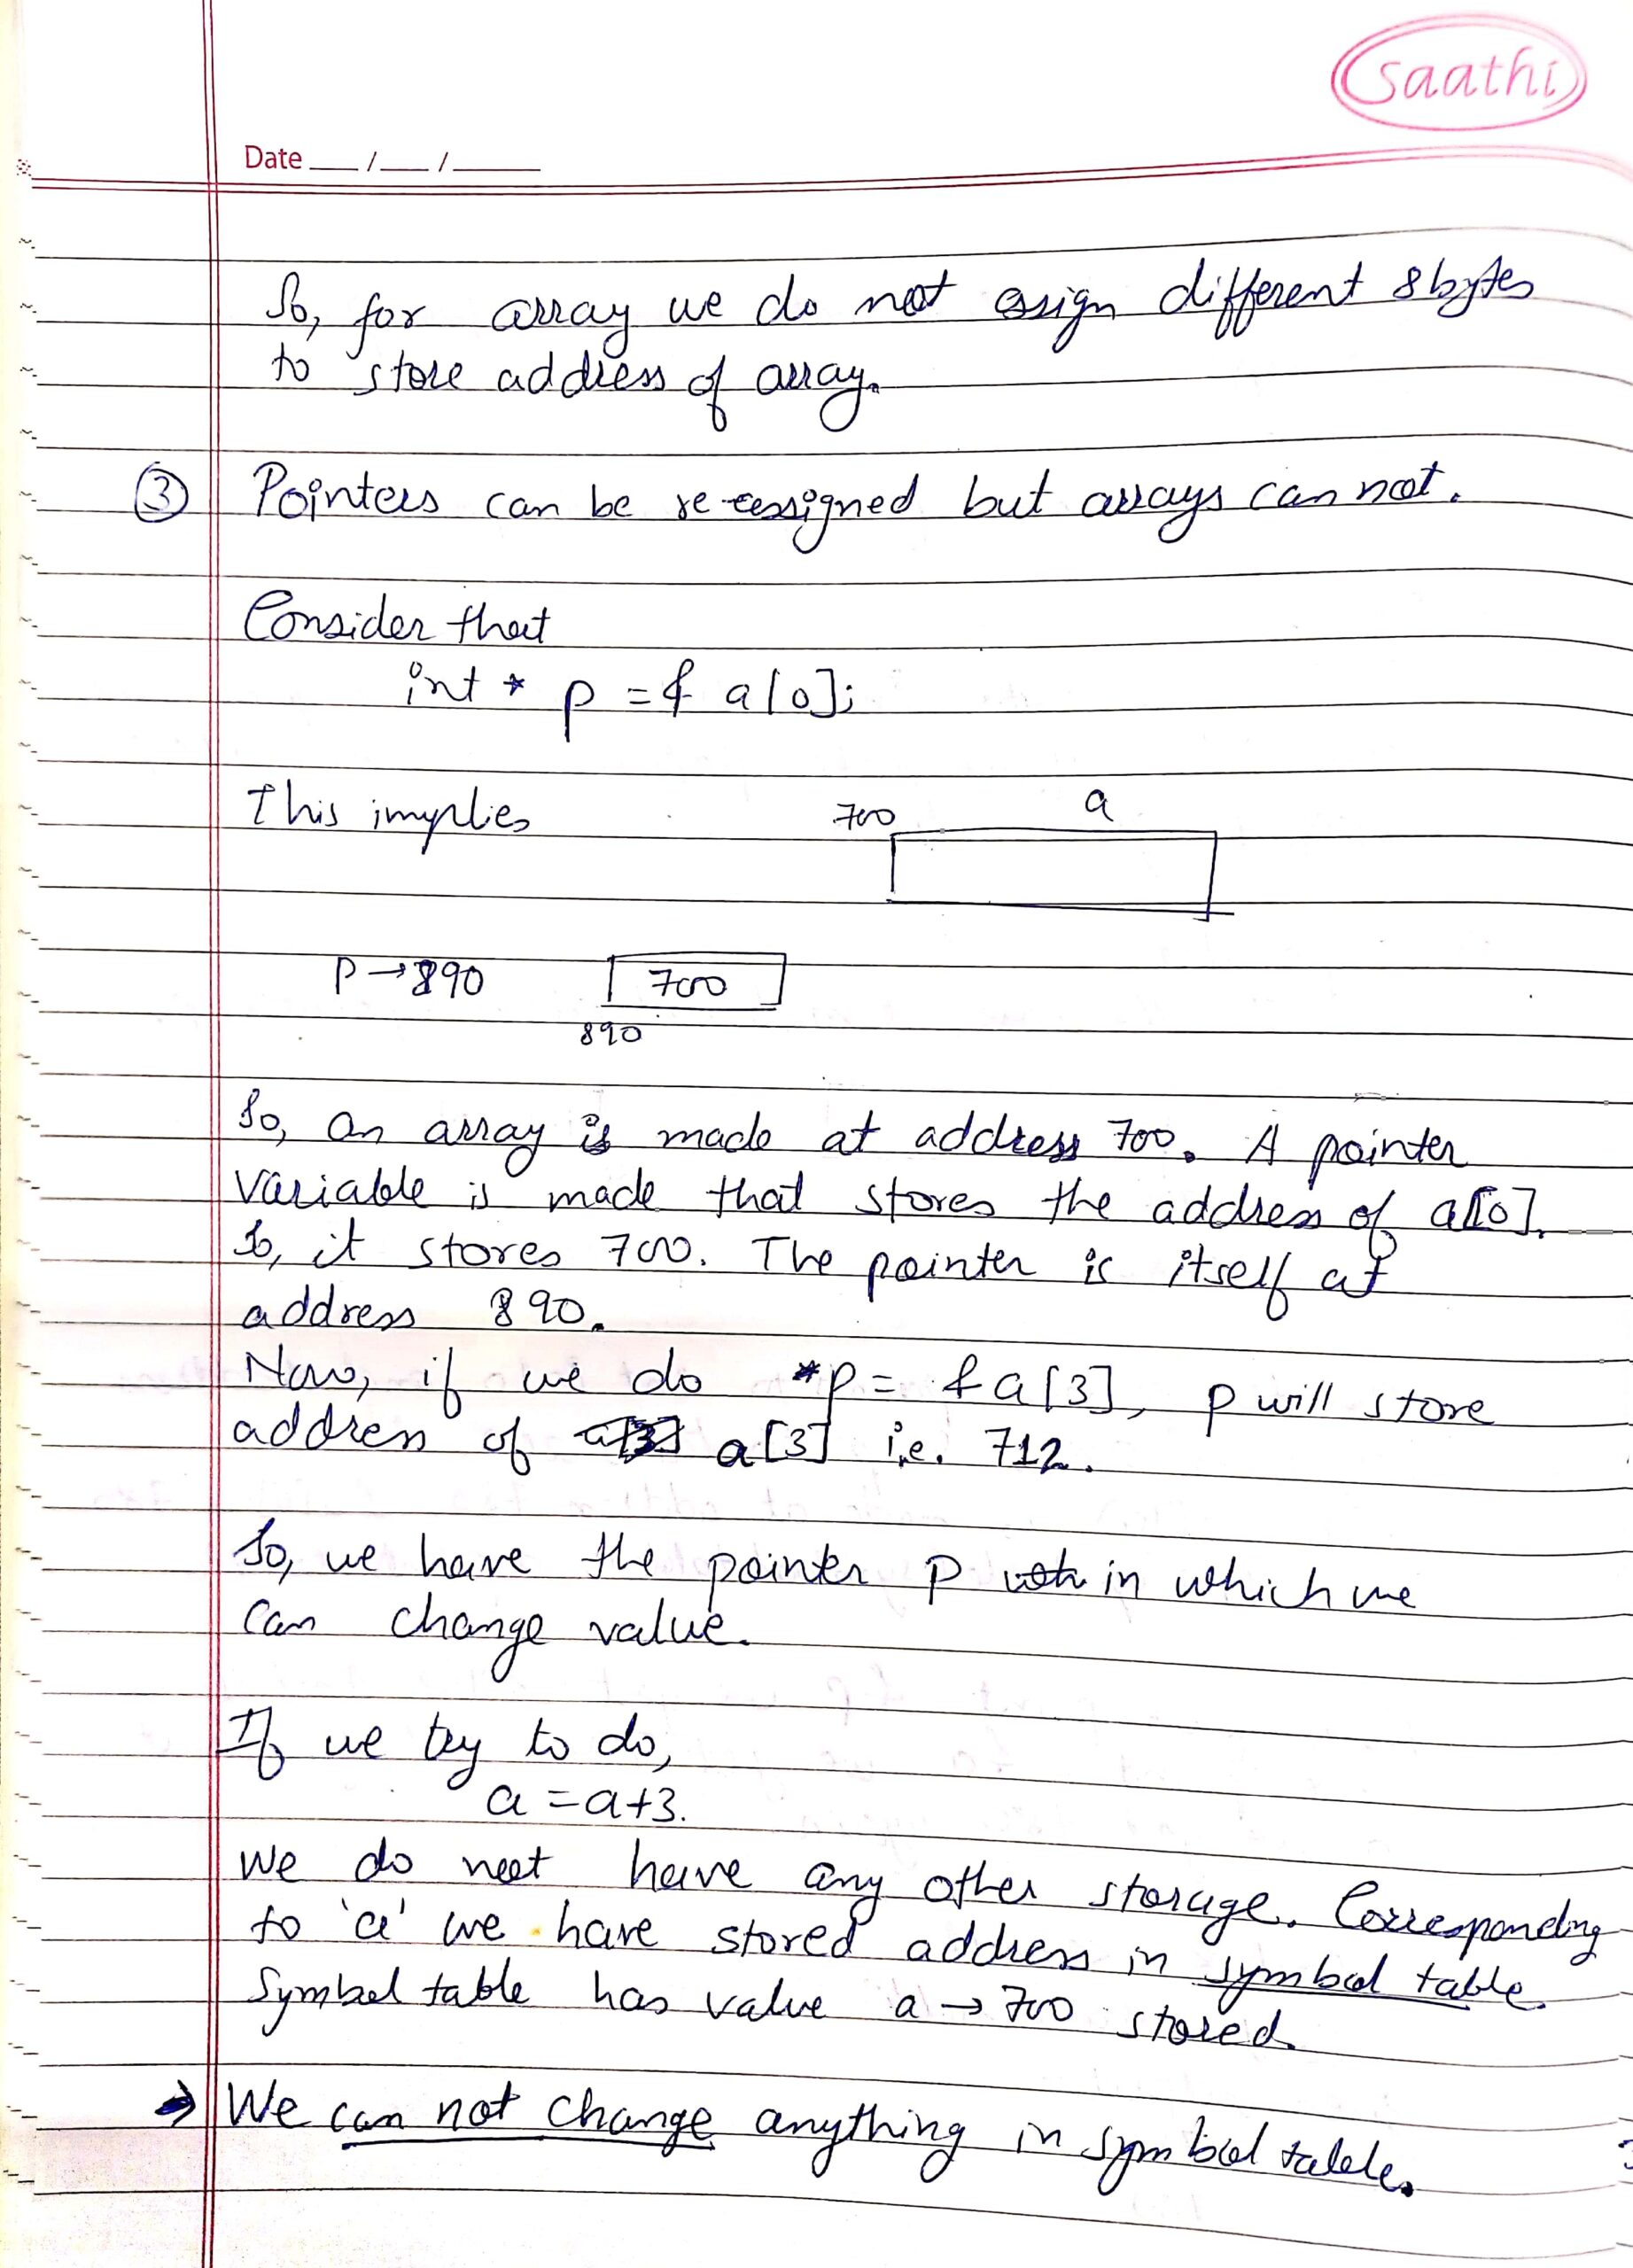 saathi
Date __ / __ / ____
So, for array we do not assign different 8 bytes
to store address of array.
③ Pointers can be re-assigned but arrays can not.
Consider that
int * p = & a[0];
This implies
700 a
P → 890 700
890
So, an array is made at address 700. A pointer
variable is made that stores the address of a[0].
So, it stores 700. The pointer is itself at
address 890.
Now, if we do *p = & a[3], p will store
address of a[3] i.e. 712.
So, we have the pointer p in which we
can change value.
If we try to do,
a = a+3.
we do not have any other storage. Corresponding
to 'a' we have stored address in symbol table.
Symbol table has value a → 700 stored.
→ We can not change anything in symbol table.